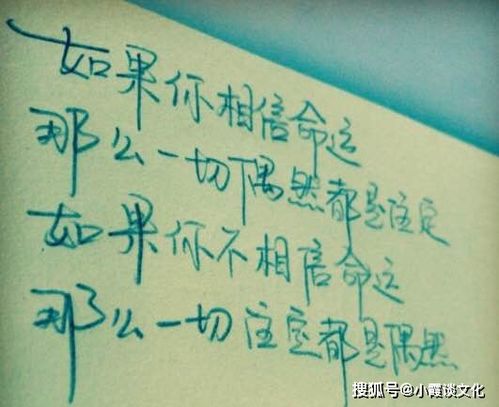 如果你相信命运
那么一切偶然都是注定
如果你不相信命运
那么一切注定都是偶然
搜狐号@小霞谈文化